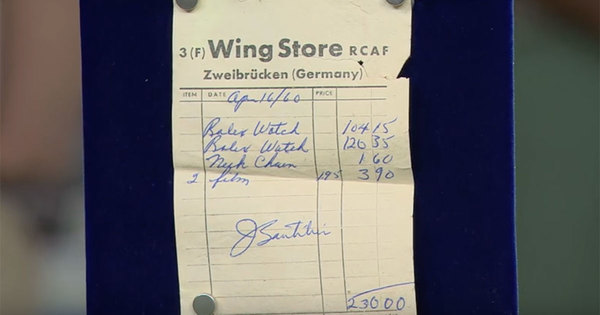 3 (F) Wing Store RCAF
Zweibrücken (Germany)
ITEM DATE PRICE
Apr 16/60
Rolex Watch 104 15
Rolex Watch 120 35
Neck Chain 1 60
2 film 195 3 90
J
230 00